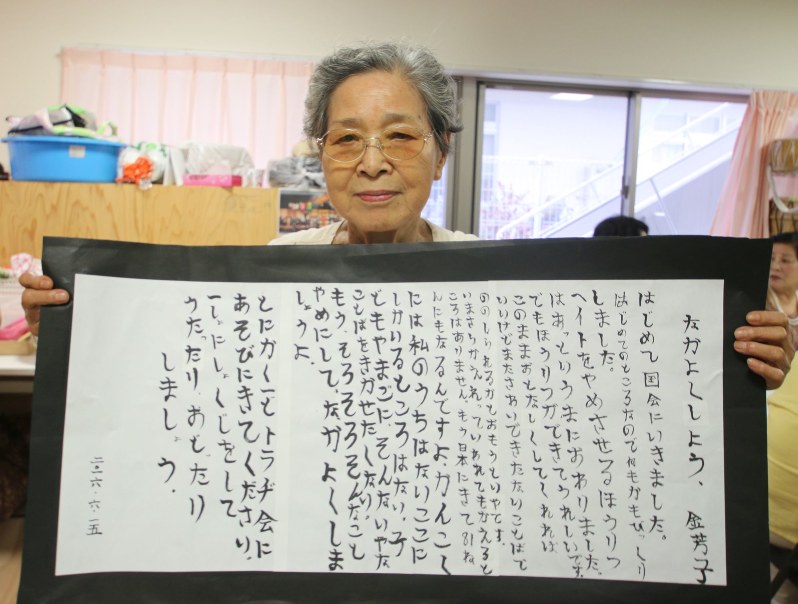 なかよくしよう、 金芳子
はじめて国会にいきました。
はじめてのところなので何もかもびっくり
しました。
ヘイトをやめさせてるほうりつ
はあっというまにおわりました、
でもほうりつができてうれしいです、
このままおとなしくしてくれれば
いいけどまたさわいできたないことばで
ののしられるかとおもうといやです。
いまさらかえれっていわれてもかえると
ころはありません、もう日本にきて81ね
んにもなるんですよ、かんこく
には私のうちはないここに
しかいるところはない、子
どもやまごに、そんないやな
ことばをきかせたくない、
もう、そろそろそんなこと
やめにして、なかよくしま
しょうよ、
とにかく一どトラヂ会に
あそびにきてください、
一しょにしょくじをして
うたったり、おどったり
しましょう、
二〇一六・六・一五